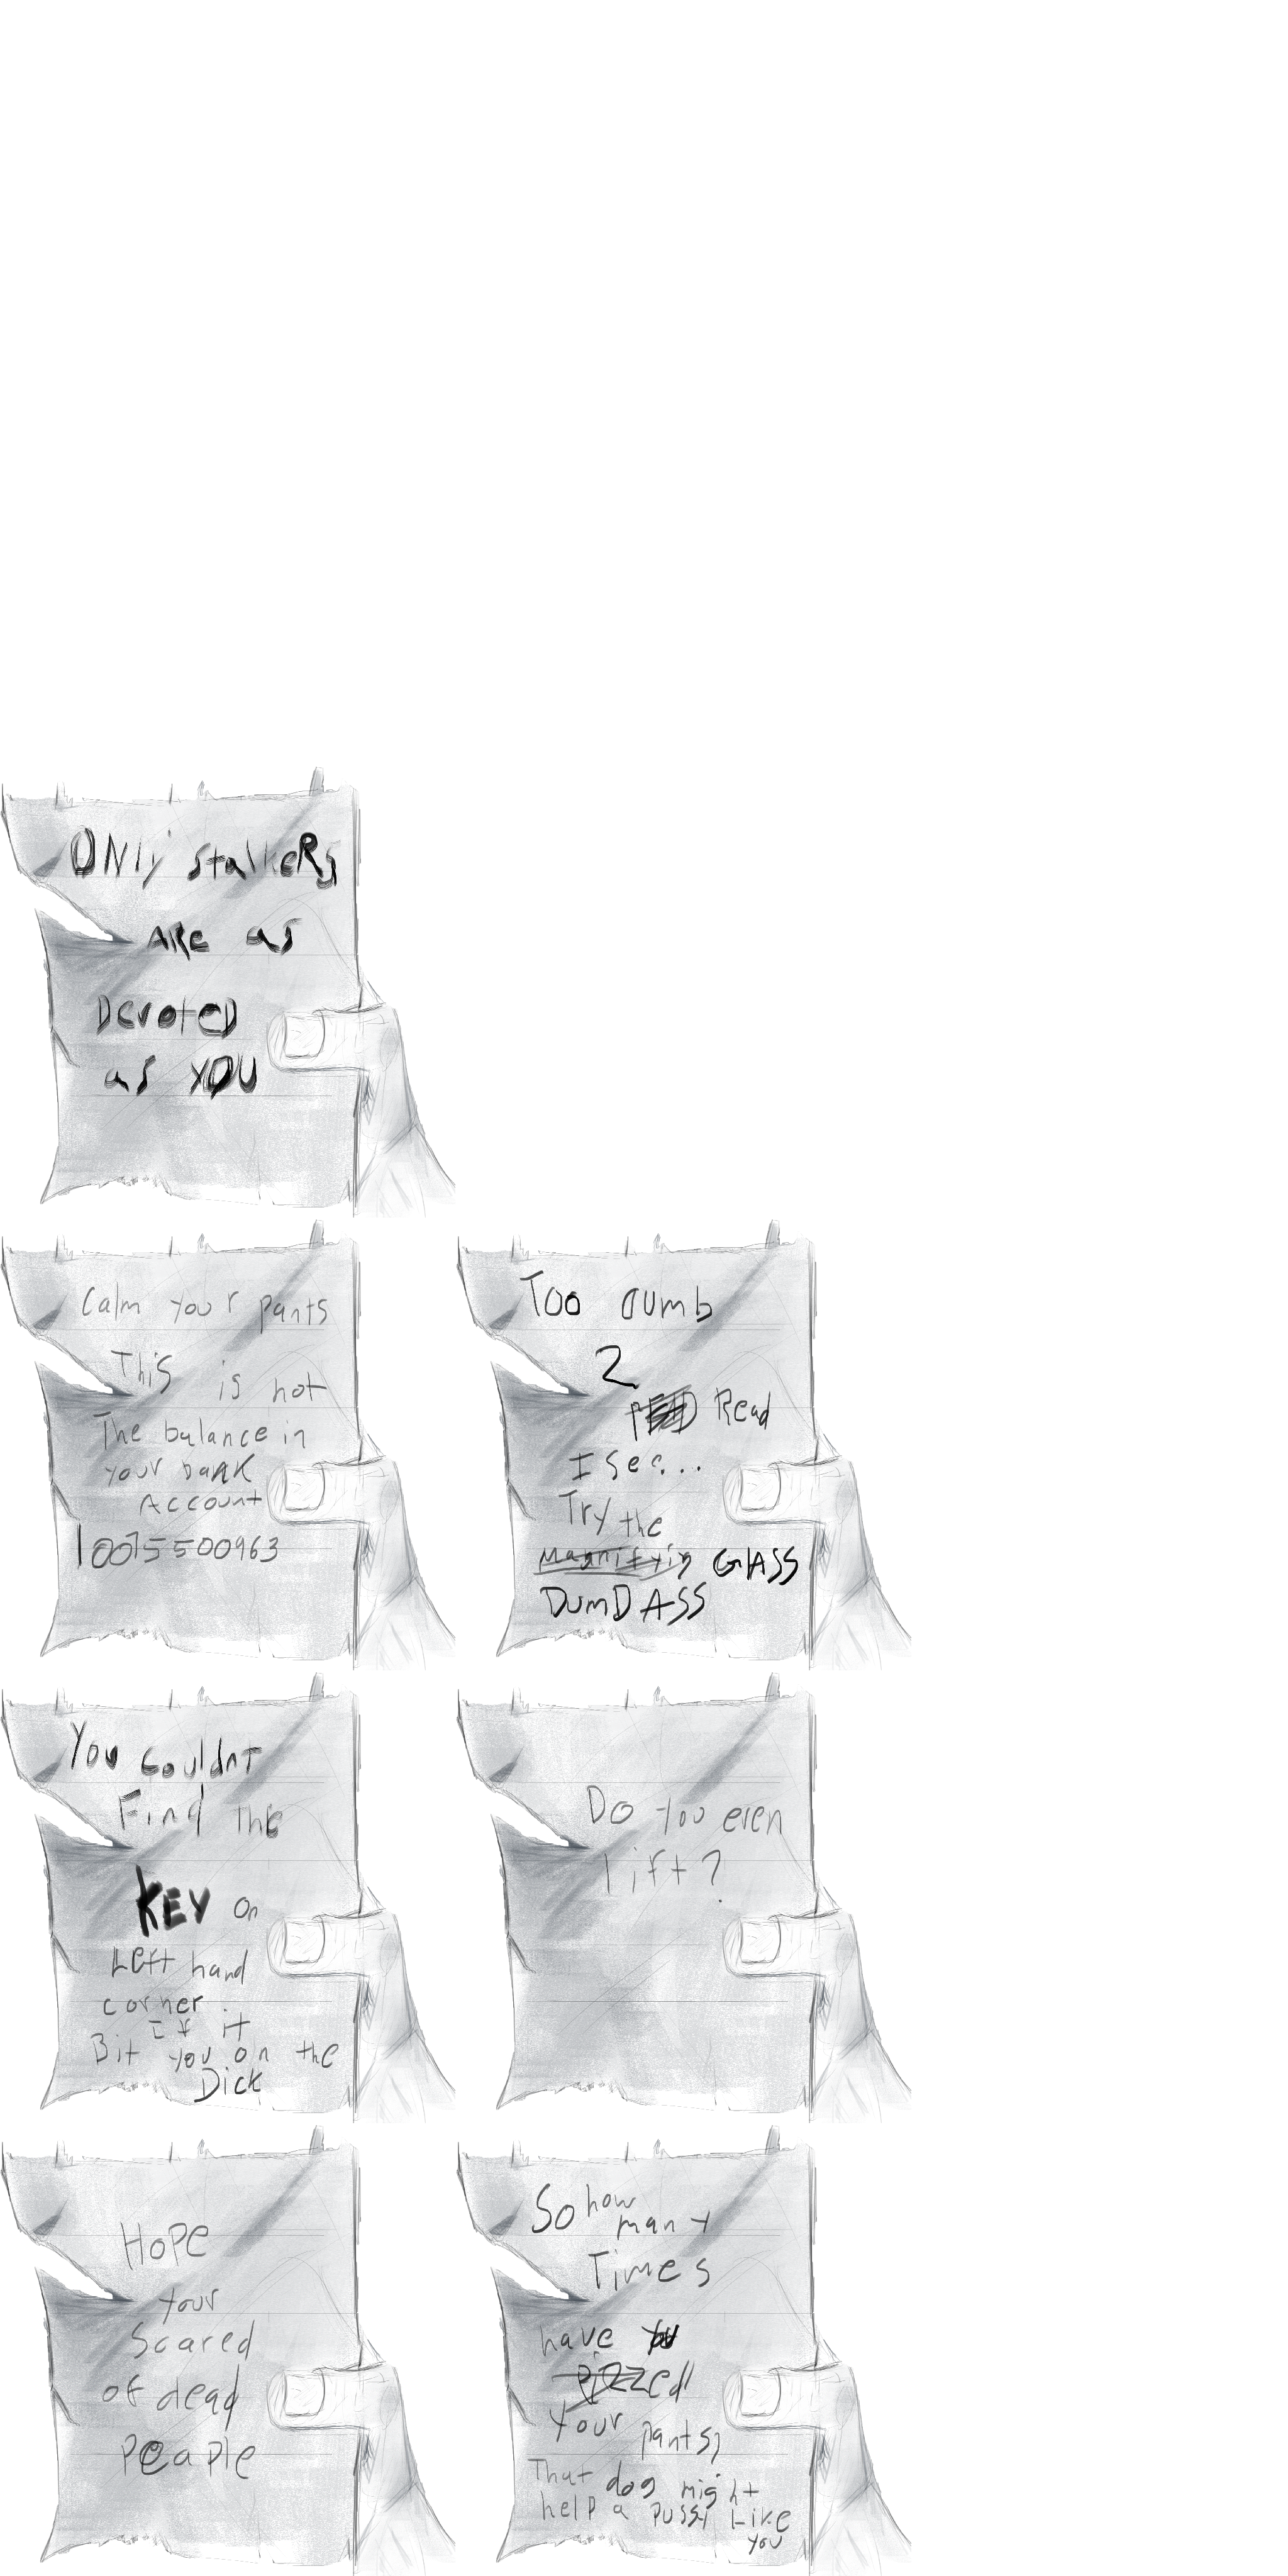 ONly stalkeRs
ARe as
DevoteD
as YOU
Calm your pants
This is not
The balance in
your bank
Account
10075500963
Too dumb
2
Read
I see...
Try the
Magnifyin GlASS
DumDASS
You couldnt
Find the
KEY on
Left hand
corner.
If it
Bit you on the
Dick
Do you even
lift?
HoPe
your
Scared
of dead
PeaPle
So how
many
Times
have you
pizzed
Your pants?
That dog might
help a pussy Like
you